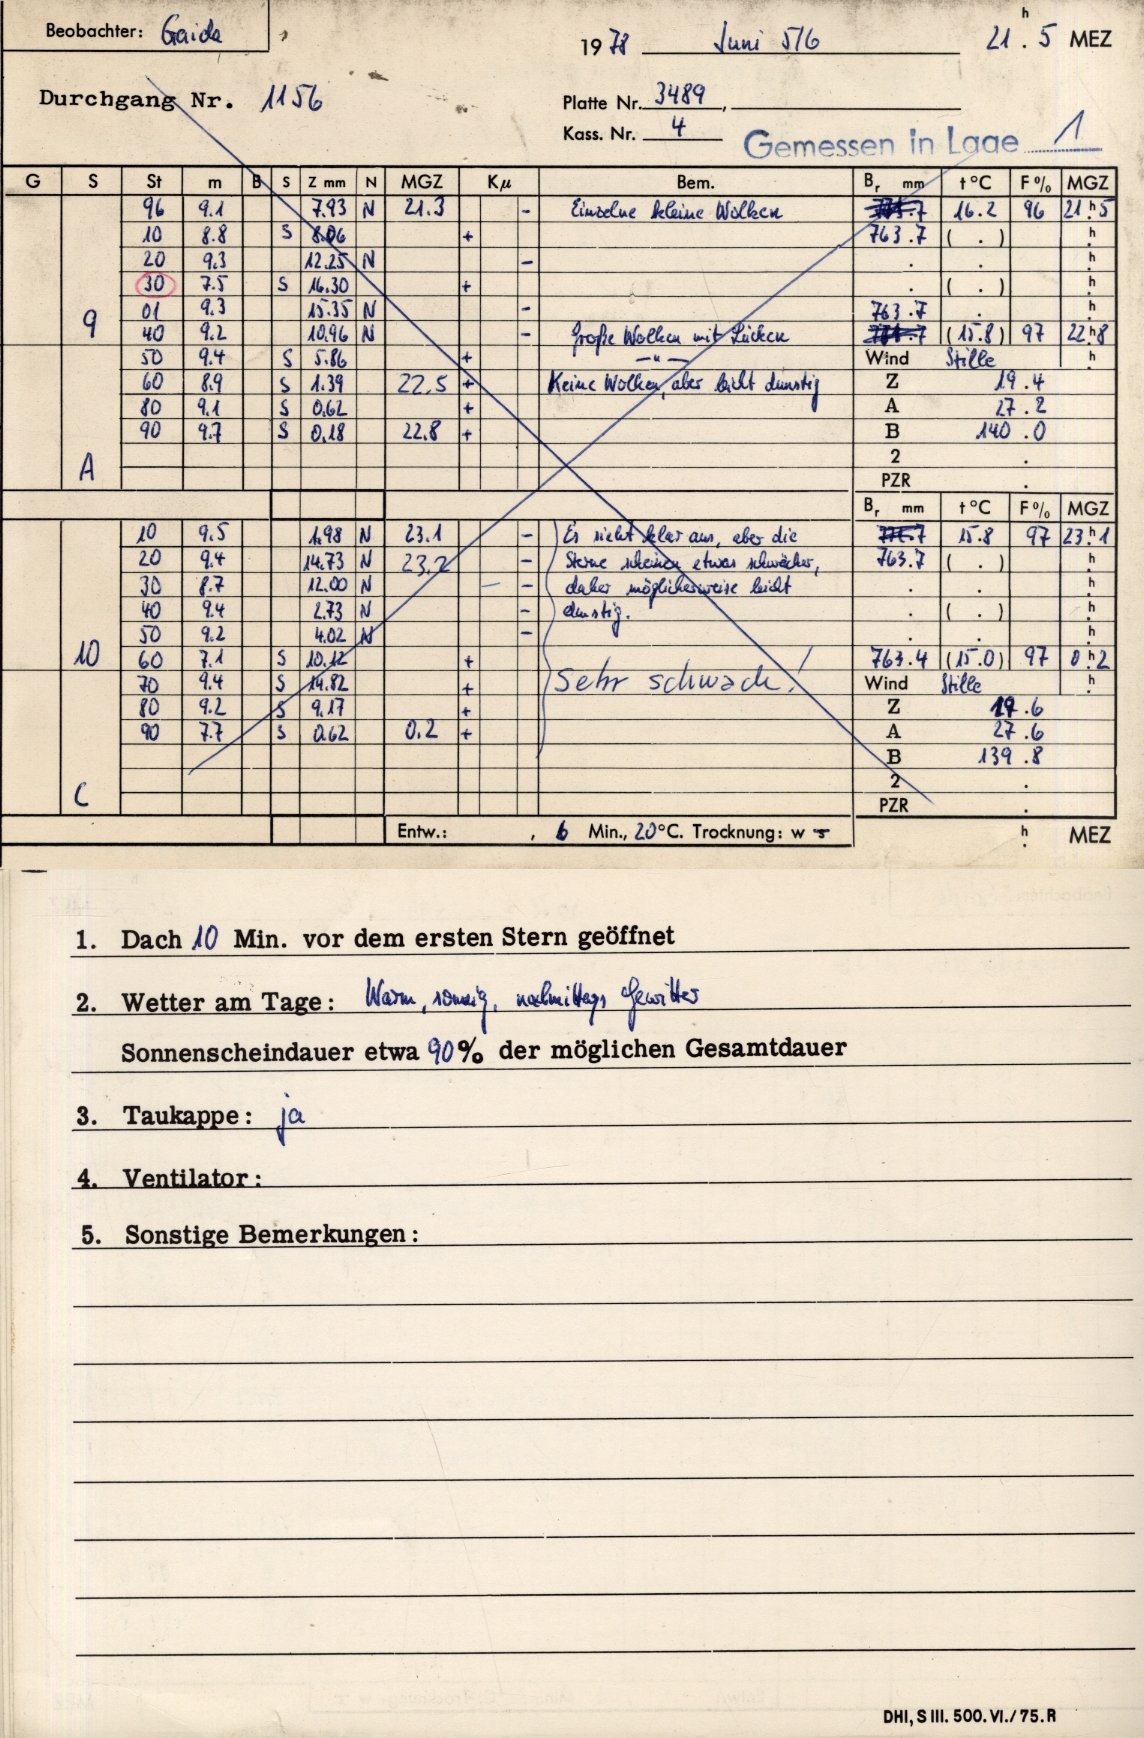 Beobachter: Gaida
1978 Juni 5/6 21h.5 MEZ
Durchgang Nr. 1156
Platte Nr. 3489,
Kass. Nr. 4
Gemessen in Lage 1
G S St m B S Z mm N MGZ Kµ Bem. Br mm t°C F% MGZ
96 9.1 7.93 N 21.3 - Einzelne kleine Wolken 16.2 96 21h5
10 8.8 S 8.06 + 763.7 ( . ) h
20 9.3 12.25 N - . . h
30 7.5 S 16.30 + . ( . ) h
01 9.3 15.35 N - 763.7 . h
9 40 9.2 10.96 N - Große Wolken mit Lücken (15.8) 97 22h8
50 9.4 S 5.86 + —"— Wind Stille h
60 8.9 S 1.39 22.5 + Keine Wolken, aber leicht dunstig Z 19.4
80 9.1 S 0.62 + A 27.2
90 9.7 S 0.18 22.8 + B 140.0
A 2 .
PZR .
Br mm t°C F% MGZ
10 9.5 1.98 N 23.1 - Es sieht klar aus, aber die 15.8 97 23h1
20 9.4 14.73 N 23.2 - Sterne scheinen etwas schwächer, 763.7 ( . ) h
30 8.7 12.00 N - daher möglicherweise leicht . . h
40 9.4 2.73 N - dunstig. . ( . ) h
50 9.2 4.02 N - . . h
10 60 7.1 S 10.12 + 763.4 (15.0) 97 0h2
70 9.4 S 14.82 + Sehr schwach! Wind Stille h
80 9.2 S 9.17 + Z 19.6
90 7.7 S 0.62 0.2 + A 27.6
B 139.8
C 2 .
PZR .
Entw.: , 6 Min., 20°C. Trocknung: w h MEZ
1. Dach 10 Min. vor dem ersten Stern geöffnet
2. Wetter am Tage: Warm, sonnig, nachmittags Gewitter
Sonnenscheindauer etwa 90% der möglichen Gesamtdauer
3. Taukappe: ja
4. Ventilator:
5. Sonstige Bemerkungen:
DHI, S III. 500. VI./75. R